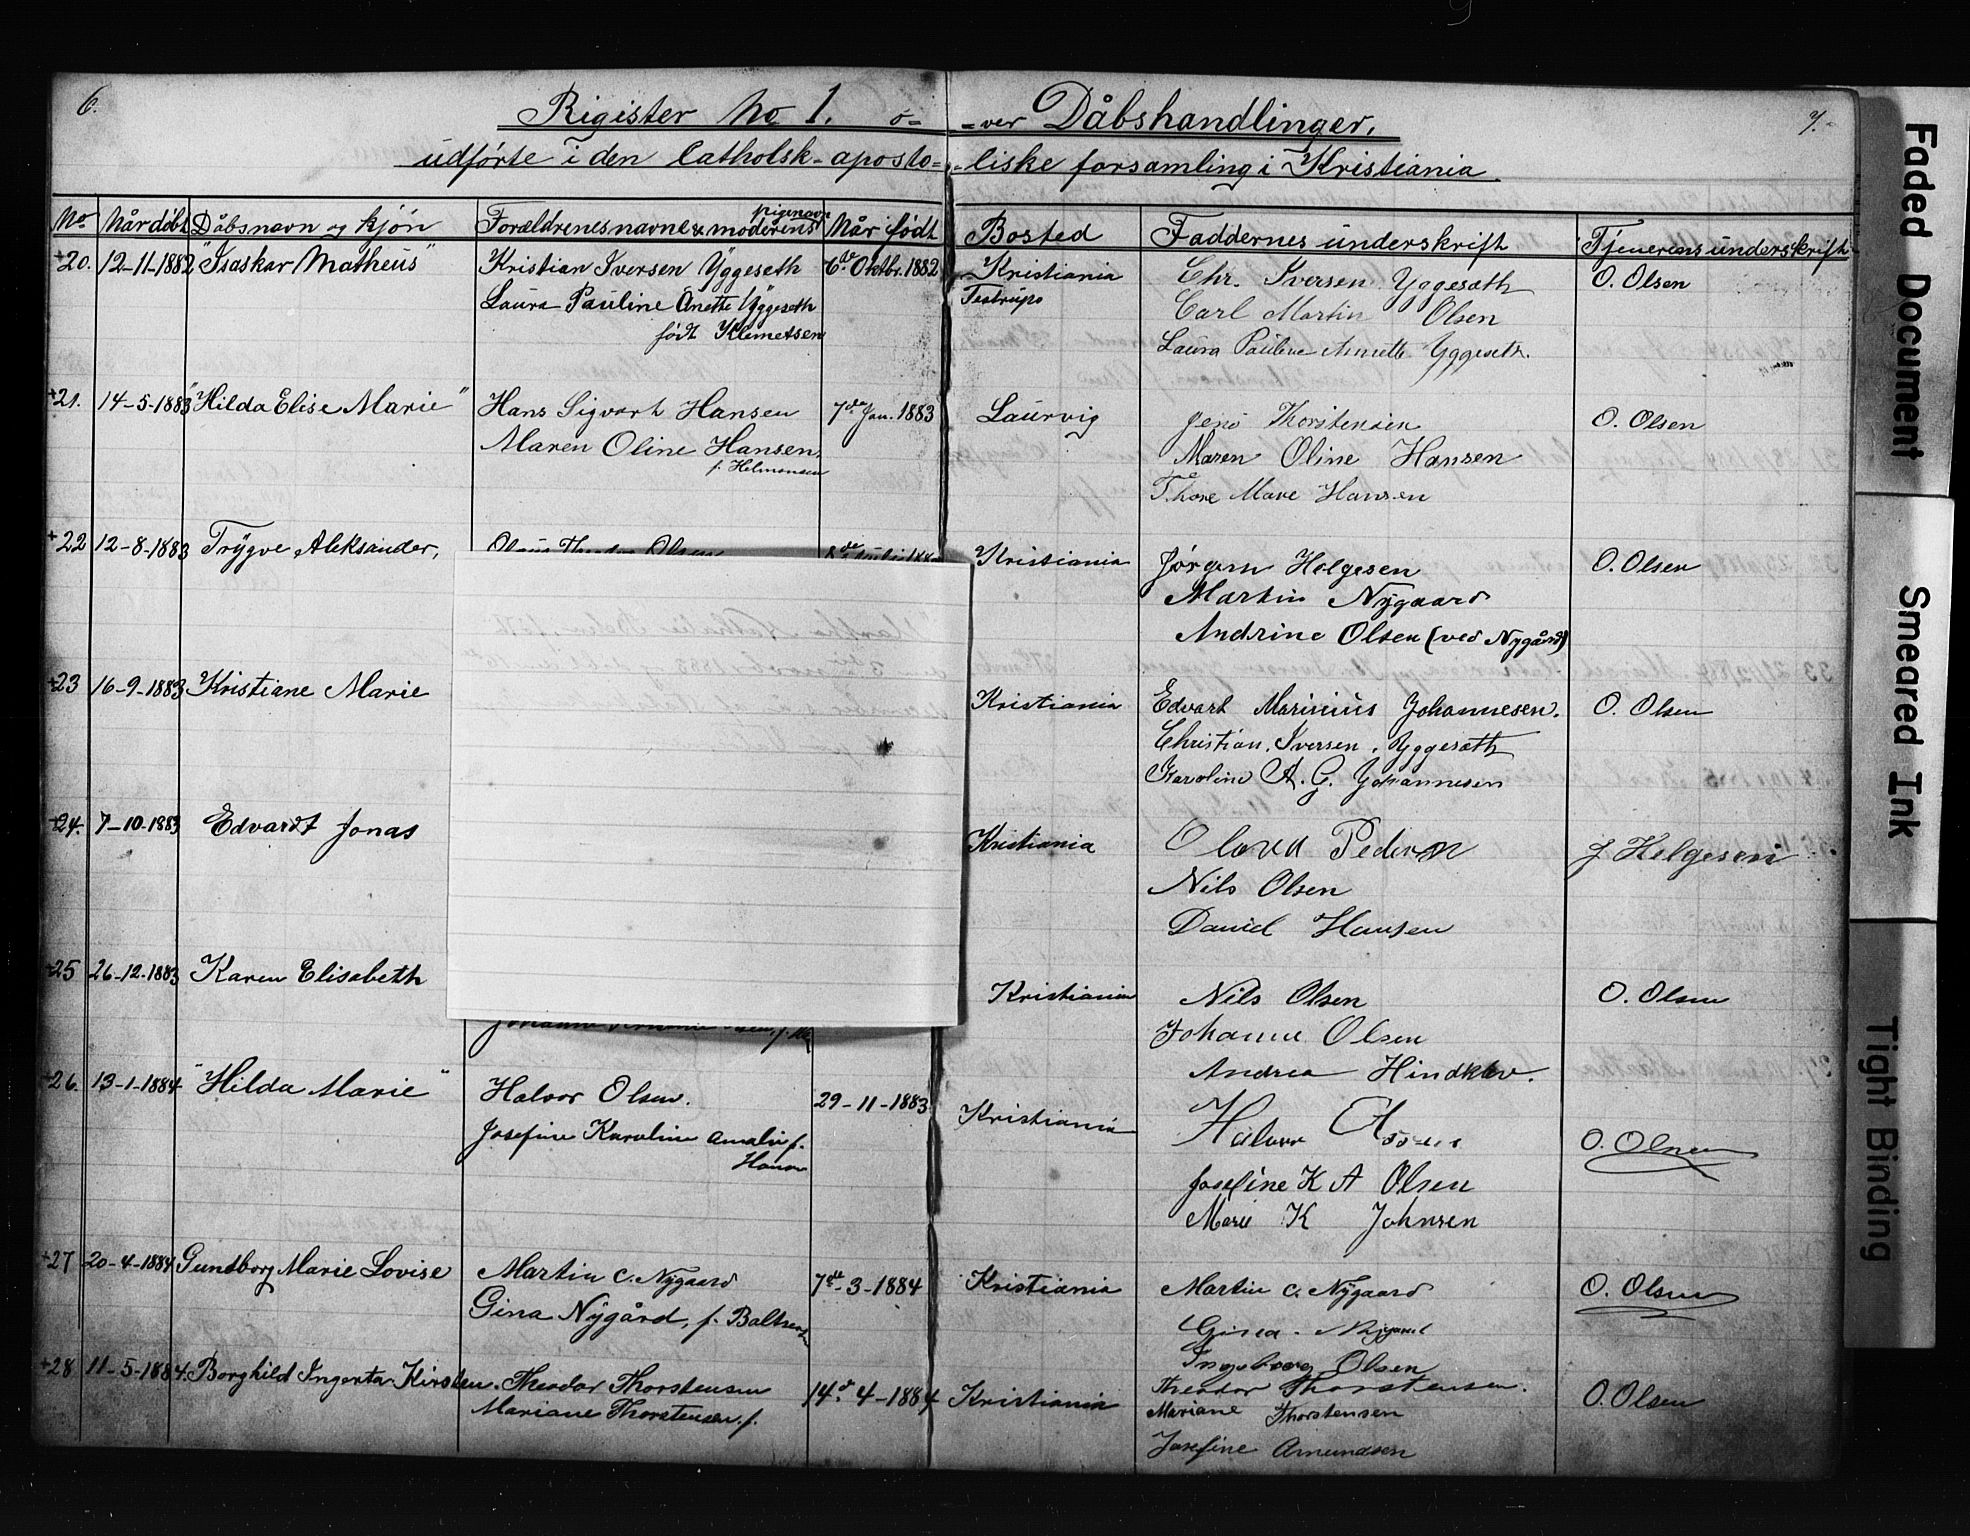 6.
Rigister No 1. o-
-ver Dåbshandlinger.
7.
udførte i den Catholsk-aposto-
-liske forsamling i Kristiania.
No Når døbt Dåbsnavn og kjön Forældrenes navne & moderens pigenavn Når født Bosted Faddernes underskrift Tjenerens underskrift
+20. 12-11-1882 "Isaskar Matheus" Kristian Iversen Yggeseth 6te Oktbr. 1882 Kristiania Chr. Iversen Yggesæth O. Olsen
Laura Pauline Anette Yggeseth Carl Martin Olsen
født Klemetsen Laura Pauline Annette Yggeseth.
+21. 14-5-1883 "Hilda Elise Marie" Hans Sigvart Hansen 7de Jan. 1883 Laurvig Jens Thorstensen O. Olsen
Maren Oline Hansen Maren Oline Hansen
f. Helmensen Hansen
+22 12-8-1883 Trygve Aleksander, Olsen Kristiania Jørgen Helgesen O. Olsen
Martin Nygaard
Andrine Olsen (ved Nygård)
+23 16-9-1883 Kristiane Marie Kristiania Edvart Marinius Johannesen. O. Olsen
Christian. Iversen. Yggesæth
Karoline A. G. Johannesen
+24. 7-10-1883 Edvardt Jonas Kristiania Pedersen J Helgesen
Nils Olsen
David Hansen
+25 26-12-1883 Karen Elisabeth Kristiania Nils Olsen O. Olsen
Johanne Olsen
Andrea Hindklev.
+26. 13-1-1884 "Hilda Marie" Halvor Olsen. 29-11-1883 Kristiania Halvor O. Olsen
Josefine Karoline Amalie f. Josefine K A Olsen
Marie K Johnsen
+27 20-4-1884 Gundborg Marie Lovise Martin C. Nygaard 7de-3-1884 Kristiania Martin C. Nygaard O. Olsen
Gina Nygård, f. Gina. Nygaard
Ingeborg Olsen
+28 11-5-1884. Borghild Ingerta Kirsten. Theodor Thorstensen 14de 4-1884 Kristiania Theodor Thorstensen. O. Olsen
Mariane Thorstensen f. Mariane Thorstensen
Josefine Amundsen
Faded Document
Smeared Ink
Tight Binding